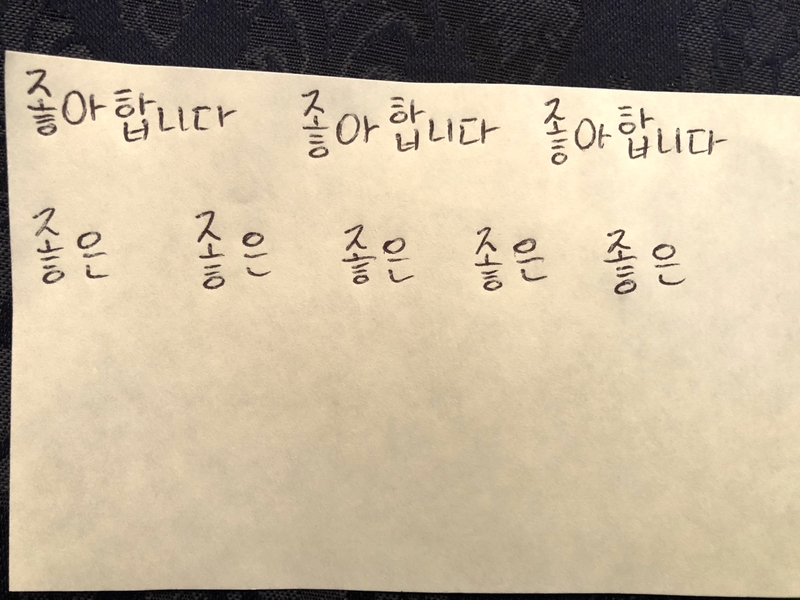 좋아합니다 좋아합니다 좋아합니다
좋은 좋은 좋은 좋은 좋은